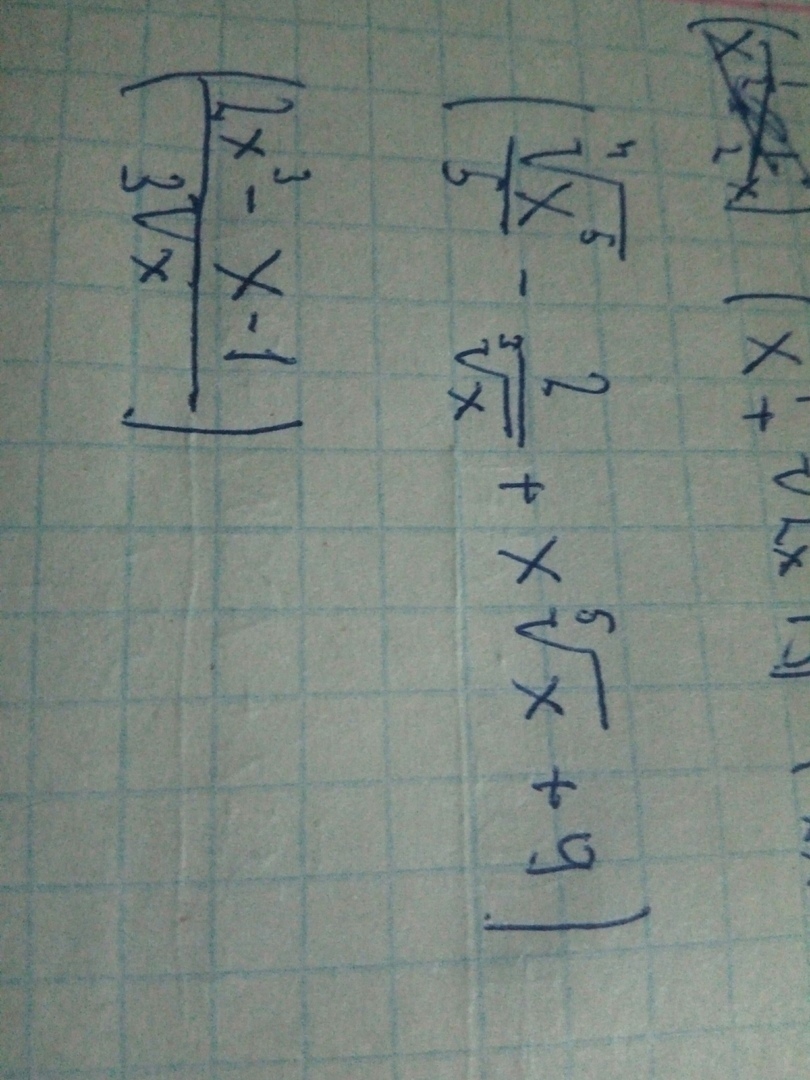 (x + √2x
(⁴√x⁵/5 - 2/³√x + x⁵√x + 9)
(2x³ - x - 1/3√x)